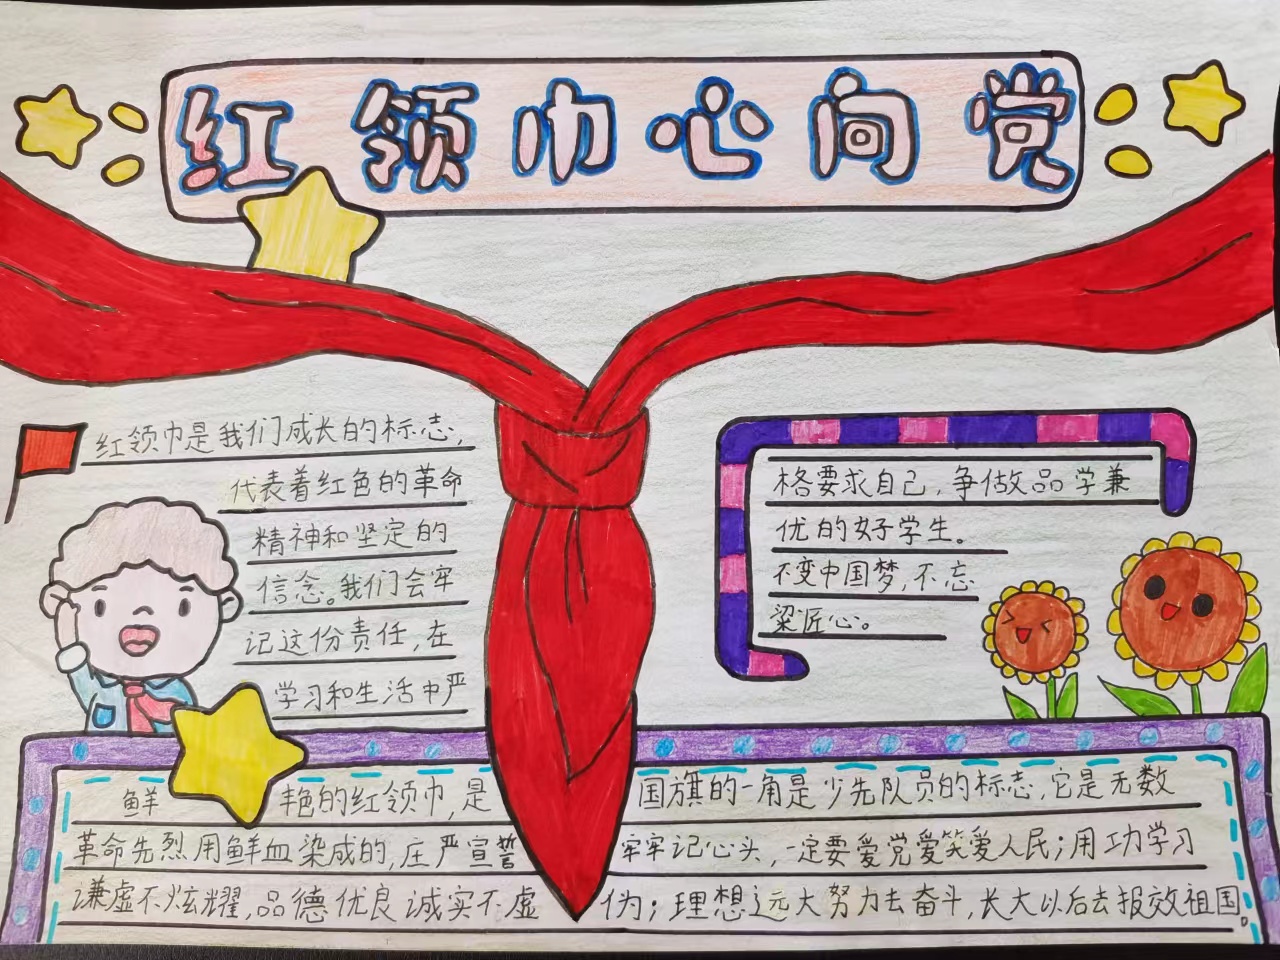 红领巾心向党
红领巾是我们成长的标志，
代表着红色的革命
精神和坚定的
信念。我们会牢
记这份责任，在
学习和生活中严
格要求自己，争做品学兼
优的好学生。
不变中国梦，不忘
梁匠心。
鲜艳的红领巾，是国旗的一角是少先队员的标志，它是无数
革命先烈用鲜血染成的，庄严宣誓牢牢记心头，一定要爱党爱笑爱人民；用功学习
谦虚不炫耀，品德优良诚实不虚伪；理想远大努力去奋斗，长大以后去报效祖国。